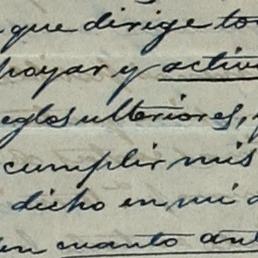 que dirige to
poyar y activ
eglos ulteriores,
cumplir mis
dicho en mi
en cuanto ant